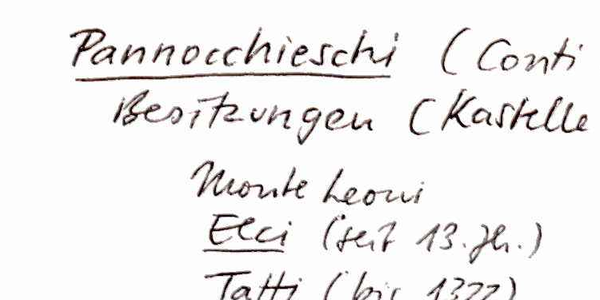 Pannocchieschi (Conti
Besitzungen (Kastelle
Monte Leoni
Elci (seit 13. Jh.)
Tatti (bis 1377)